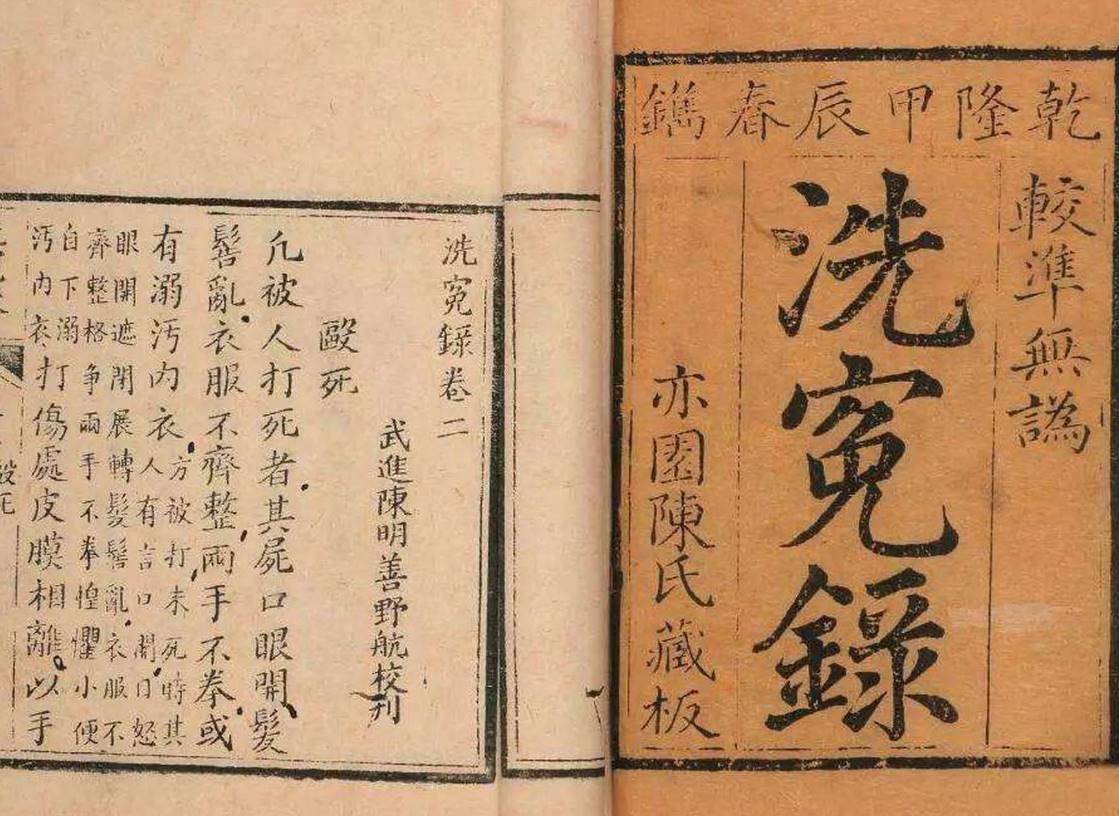 乾隆甲辰春鐫
較準無譌
洗寃錄
亦園陳氏藏板
洗寃錄卷二
武進陳明善野航校刋
毆死
凢被人打死者其屍口眼開髮
髻亂衣服不齊整兩手不拳或
有溺汚內衣方被打未死時其
人有言口開目怒
眼開遮閉展轉髮髻亂衣服不
齊整格爭兩手不拳惶懼小便
自下溺
汚內衣打傷處皮膜相離以手